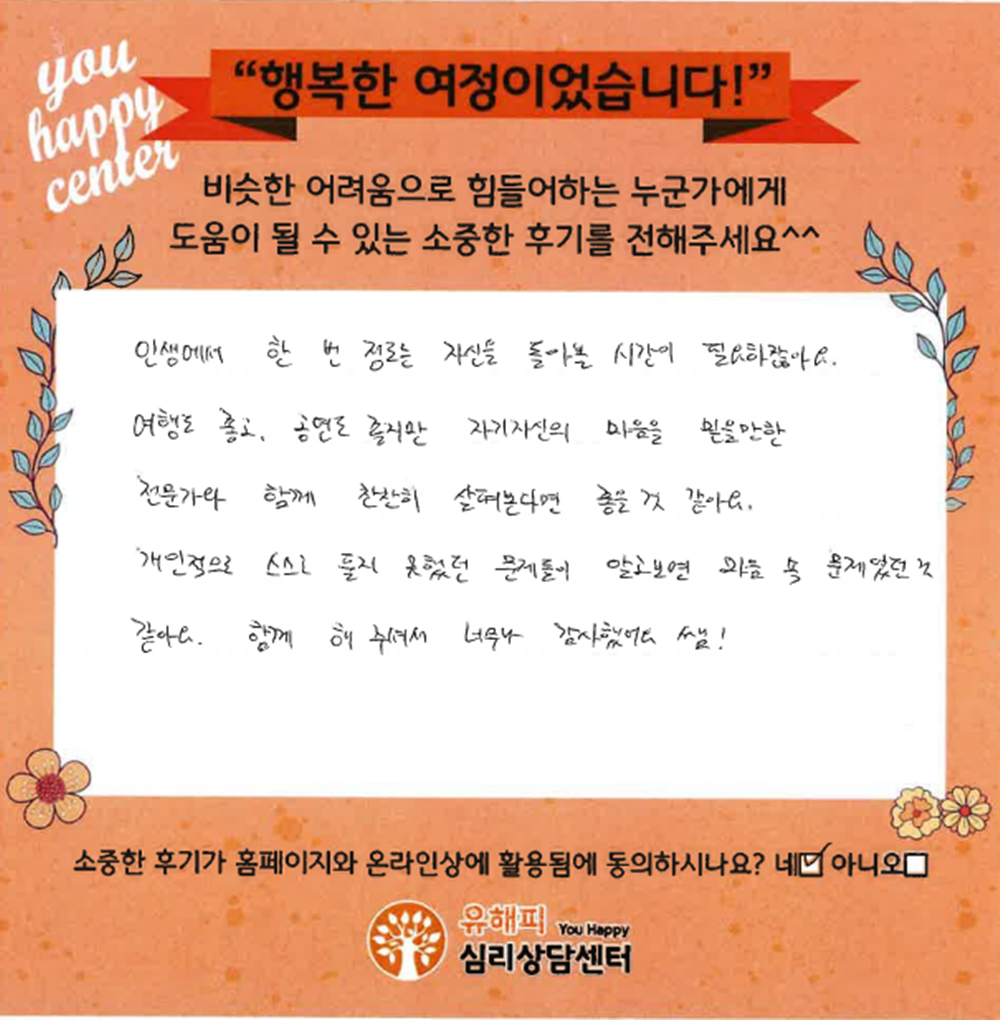 you
happy
center
“행복한 여정이었습니다!”
비슷한 어려움으로 힘들어하는 누군가에게
도움이 될 수 있는 소중한 후기를 전해주세요^^
인생에서 한 번 정도는 자신을 돌아볼 시간이 필요하잖아요.
여행도 좋고, 공연도 좋지만 자기자신의 마음을 믿을만한
전문가와 함께 찬찬히 살펴본다면 좋을 것 같아요.
개인적으로 스스로 풀지 못했던 문제들이 알고보면 마음 속 문제였던 것
같아요. 함께 해 주셔서 너무나 감사했어요 쌤!
소중한 후기가 홈페이지와 온라인상에 활용됨에 동의하시나요? 네☑ 아니오☐
유해피 You Happy
심리상담센터